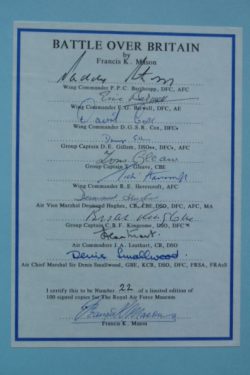 BATTLE OVER BRITAIN
by
Francis K. Mason
Wing Commander P.P.C. Barthropp, DFC, AFC
Wing Commander DFC, AE
David Cox
Wing Commander D.G.S.R. Cox, DFCs
Denys Gillam
Group Captain D.E. Gillam, DSOss, DFCs, AFC
Tom Gleave
Group Captain Gleave, CBE
Wing Commander R.E. Havercroft, AFC
Desmond Hughes
Air Vice Marshal Desmond Hughes, CB, CBE, DSO, DFC, AFC, MA
Brian Kingcome
Group Captain C.B.F. Kingcome, DSO, DFC
Air Commodore J.A. Leathart, CB, DSO
Denis Smallwood
Air Chief Marshal Sir Denis Smallwood, GBE, KCB, DSO, DFC, FRSA, FRAeS
I certify this to be Number 22 of a limited edition of
100 signed copies for The Royal Air Force Museum
Francis K Mason
Francis K. Mason